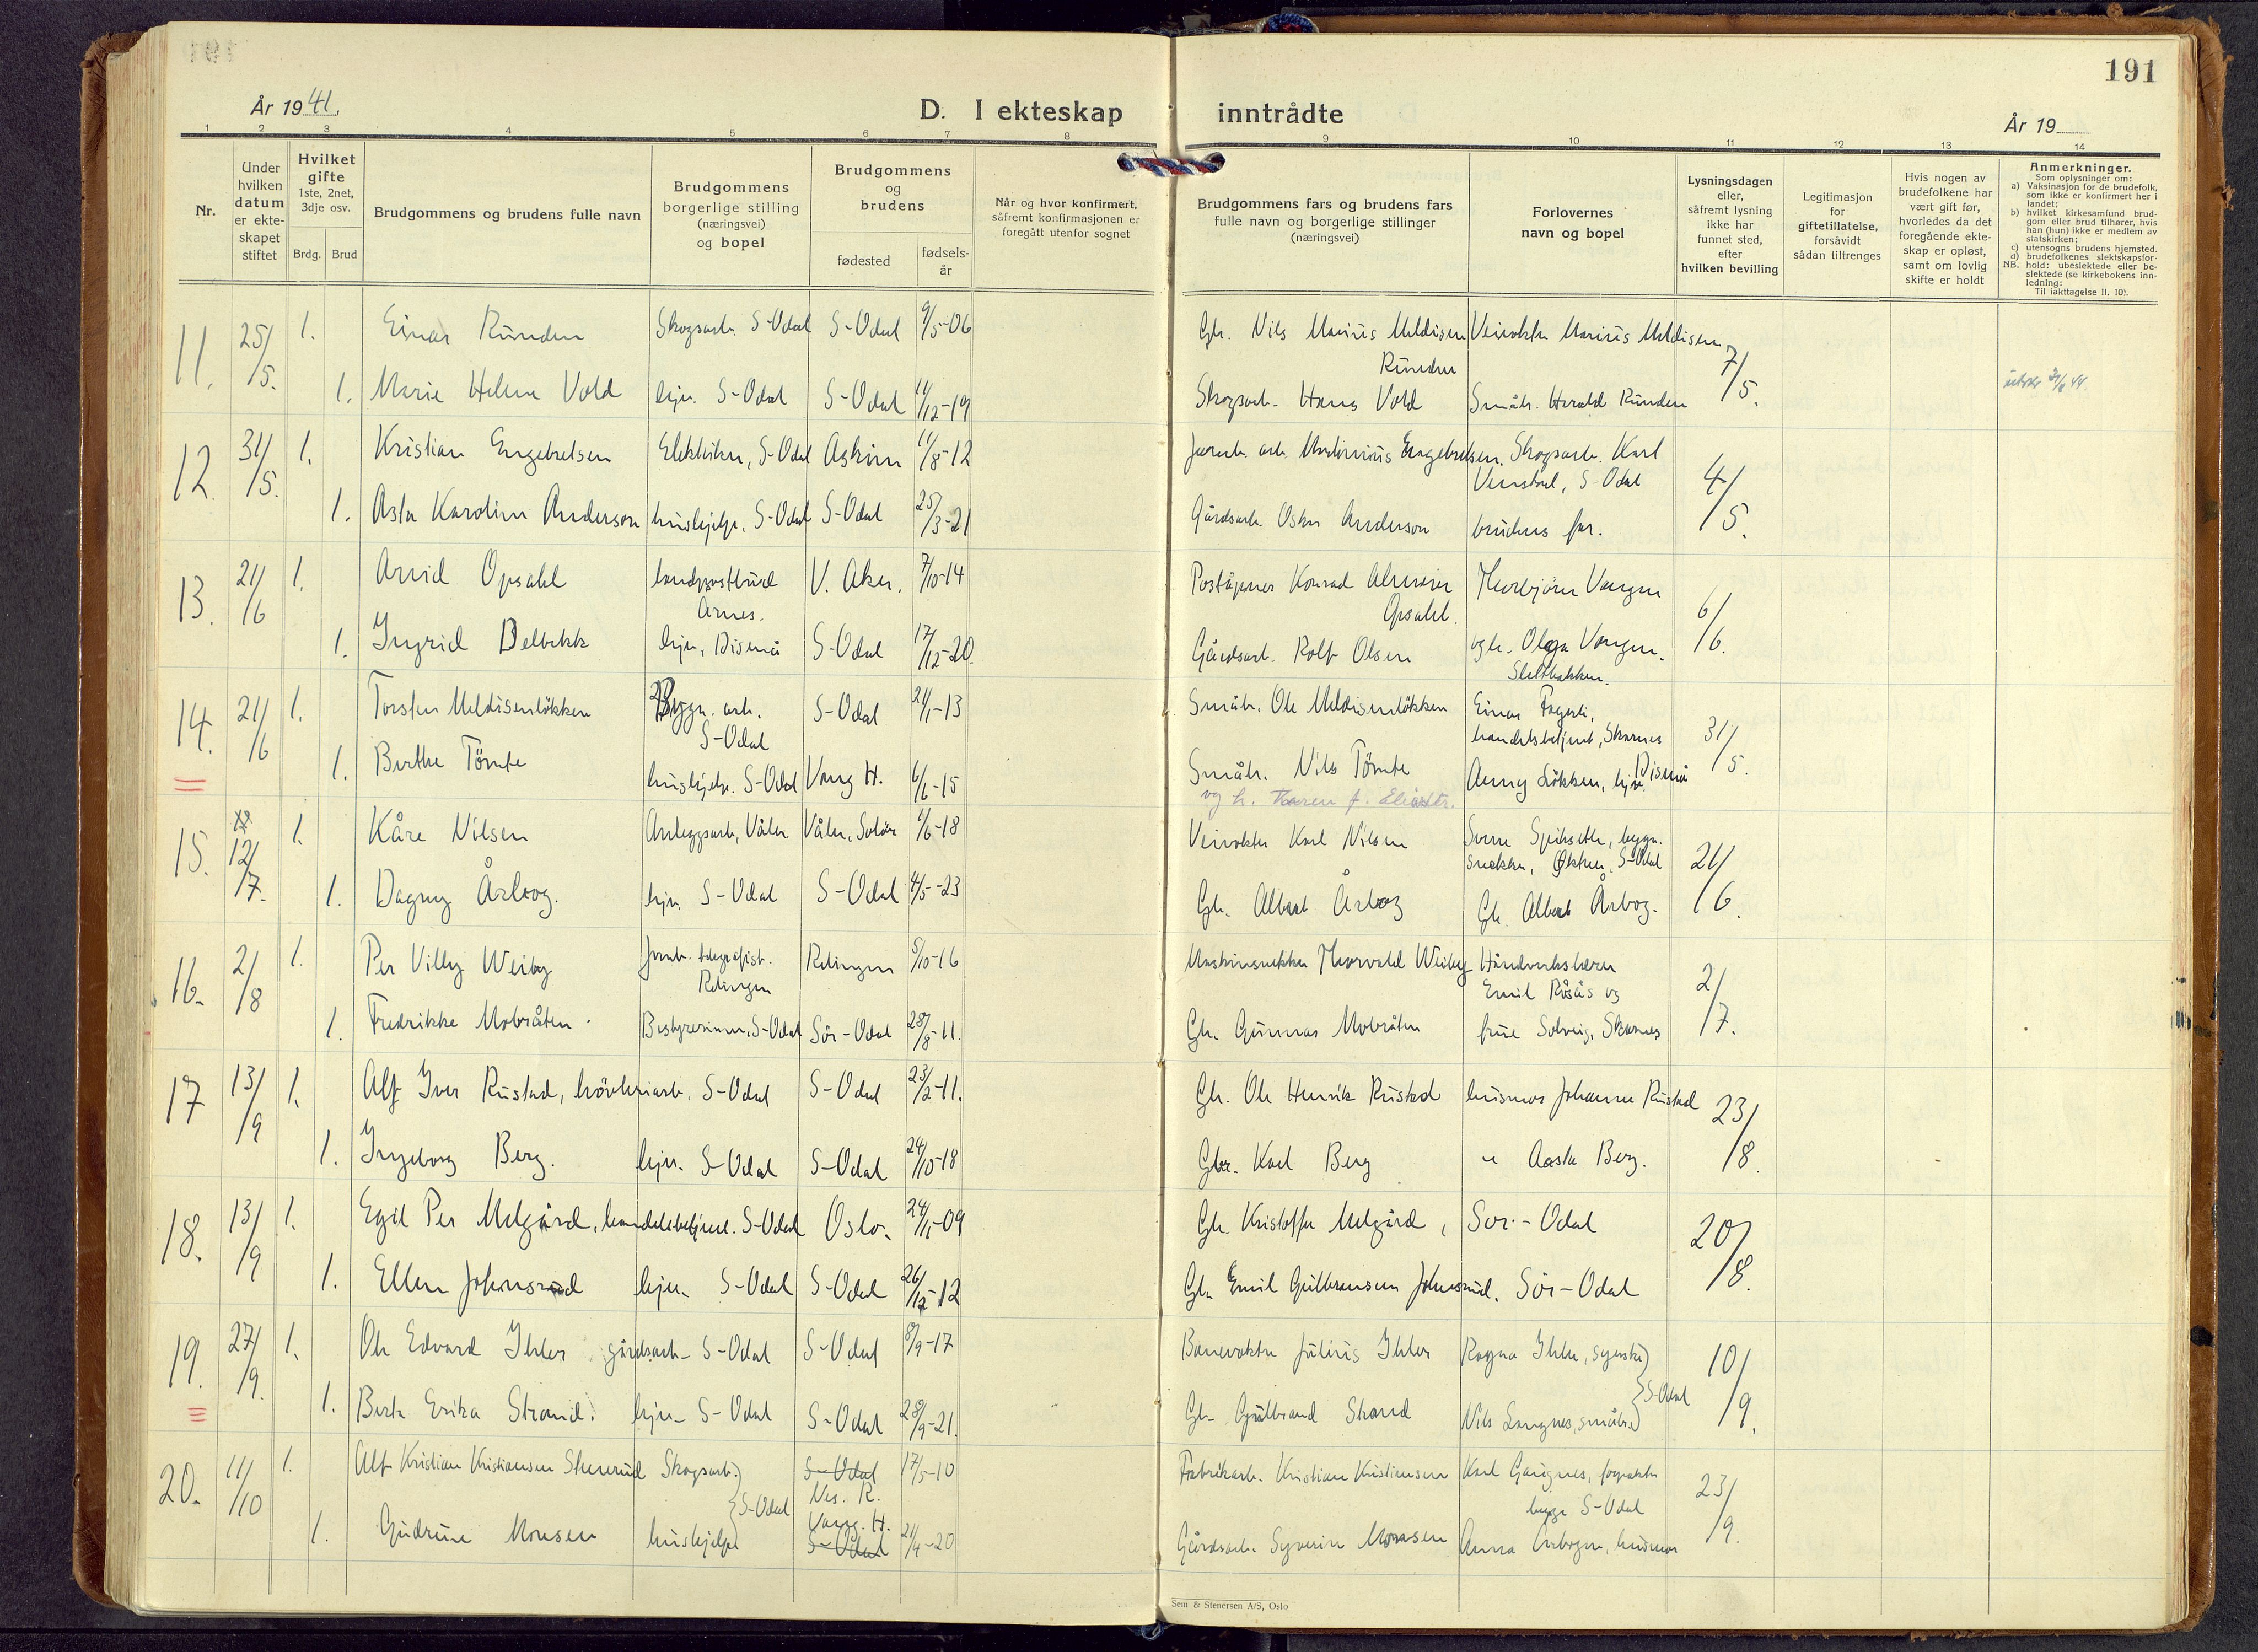 191
År 1941.
D. I ekteskap inntrådte
År 19
1 2 3 4 5 6 7 8 9 10 11 12 13 14
Nr.
Under hvilken datum er ekteskapet stiftet
Hvilket gifte 1ste, 2net, 3dje osv.
Brdg. Brud
Brudgommens og brudens fulle navn
Brudgommens borgerlige stilling (næringsvei) og bopel
Brudgommens og brudens
fødested
fødselsår
Når og hvor konfirmert, såfremt konfirmasjonen er foregått utenfor sognet
Brudgommens fars og brudens fars fulle navn og borgerlige stillinger (næringsvei)
Forlovernes navn og bopel
Lysningsdagen eller, såfremt lysning ikke har funnet sted, efter hvilken bevilling
Legitimasjon for giftetillatelse, forsåvidt sådan tiltrenges
Hvis nogen av brudefolkene har vært gift før, hvorledes da det foregående ekteskap er opløst, samt om lovlig skifte er holdt
Anmerkninger.
Som oplysninger om:
a) Vaksinasjon for de brudefolk, som ikke er konfirmert her i landet;
b) hvilket kirkesamfund brudgom eller brud tilhører, hvis han (hun) ikke er medlem av statskirken;
c) utensogns brudens hjemsted.
d) brudefolkenes slektskapsforhold: ubeslektede eller beslektede (se kirkebokens innledning:
NB. Til iakttagelse II. 10).
11. 25/5. 1. Einar Runden Skogsarb. S-Odal S-Odal 9/5-06 Gbr. Nils Marius Meldisen Runden Veivokter Marius Meldisen 7/5.
1. Marie Helene Vold hjv. S-Odal S-Odal 11/12-19 Skogsarb. Hans Vold Småbr. Harald Runden
12. 31/5. 1. Kristian Engebretsen Elektriker, S-Odal Askim 11/8-12 Jernb. arb. Martinius Engebretsen. Skogsarb. Karl S-Odal 4/5.
1. Asta Karoline Anderson hushjelp. S-Odal S-Odal 25/3-21 Gårdsarb. Oskar Anderson brudens far.
13. 21/6 1. Arvid Opsahl landpostbud Årnes. V. Aker. 7/10-14 Poståpner Konrad Opsahl. Thorbjørn Vangen 6/6.
1. Ingrid Delbekk hjv. Disenå S-Odal 17/12-20 Gårdsarb. Rolf Olsen og fr. Olga Vangen. Slettbakken.
14. 21/6 1. Torsten Meldisenløkken Bygn. arb. S-Odal S-Odal 21/1-13 Småbr. Ole Meldisenløkken Einar Fagerli, handelsbetjent, Skarnes 31/5.
1. Berthe Tömte hushjelp. S-Odal Vang H. 6/6-15 Småbr. Nils Tömte Anny Løkken, hjv. Disenå
og h. Karen f. Eliasdtr.
15. 12/7. 1. Kåre Nilsen Anleggsarb, Våler Våler, Solør 1/6-18 Veivokter Karl Nilsen Sverre bygn. snekker, S-Odal 21/6.
1. Dagny Årbog. hjv. S-Odal S-Odal 4/5-23 Gb. Albert Årbog Gb. Albert Årbog.
16. 2/8 1. Per Villy Weiby Jernb. telegrafist. Rælingen Rælingen 5/10-16 Maskinsnekker Thorvald Weiby Håndverkslærer Emil og 2/7.
1. Fredrikke Mobråten. Bestyrerinne, S-Odal Sör-Odal 28/8-11. Gbr. Gunnar Mobråten frue Solveig, Skarnes
17 13/9 1. Alf Iver Rustad, høvleriarb. S-Odal S-Odal 23/2-11. Gb. Ole Henrik Rustad husmor Johanne Rustad 23/8.
1. Ingeborg Berg. hjv. S-Odal S-Odal 24/10-18 Gbr. Karl Berg " Aasta Berg.
18. 13/9 1. Egil Per Melgård, handelsbetjent. S-Odal Oslo. 24/1-09 Gb. Kristoffer Melgård, Sør-Odal 20/8.
1. Ellen Johnsrud hjv. S-Odal S-Odal 26/12-12 Gb. Emil Gulbransen Johnsrud. Sör-Odal
19. 27/9. 1. Ole Edvard Ihler gårdsarb. S-Odal S-Odal 8/9-17 Banevokter Julius Ihler Ragna Ihler, syerske 10/9.
1. Berte Erika Strand. hjv. S-Odal S-Odal 28/9-21. Gb. Gulbrand Strand Nils Langnes, småbr. S-Odal
20. 11/10 1. Alf Kristian Kristiansen Stenerud Skogsarb. S-Odal S-Odal Nes. R. 17/5-10 Fabrikarb. Kristian Kristiansen Karl Gaugnes, begge S-Odal 23/9.
1. Gudrun Monsen hushjelp Vang. H. S-Odal 21/4-20 Gårdsarb. Syverin Monsen Anna husmor
Sem & Stenersen A/S, Oslo